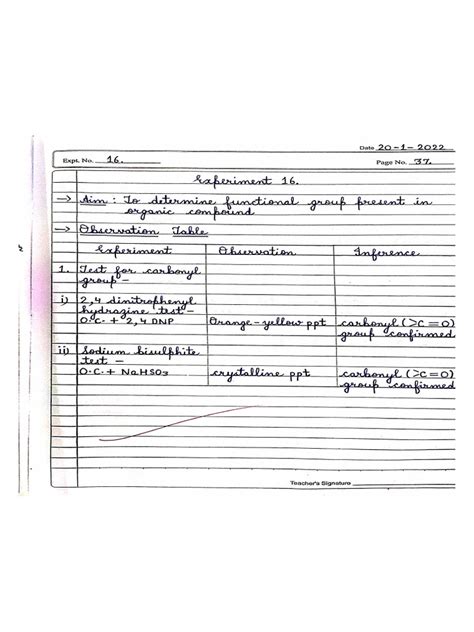 Date 20-1-2022
Expt. No. 16.
Page No. 37.
Experiment 16.
→ Aim : To determine functional group present in
organic compound
→ Observation Table
Experiment Observation Inference
1. Test for carbonyl
group -
i) 2,4 dinitrophenyl
hydrazine test -
O.C. + 2,4 DNP Orange-yellow ppt carbonyl (>C=O)
group confirmed
ii) Sodium bisulphite
test -
O.C. + NaHSO3 crystalline ppt carbonyl (>C=O)
group confirmed
Teacher's Signature